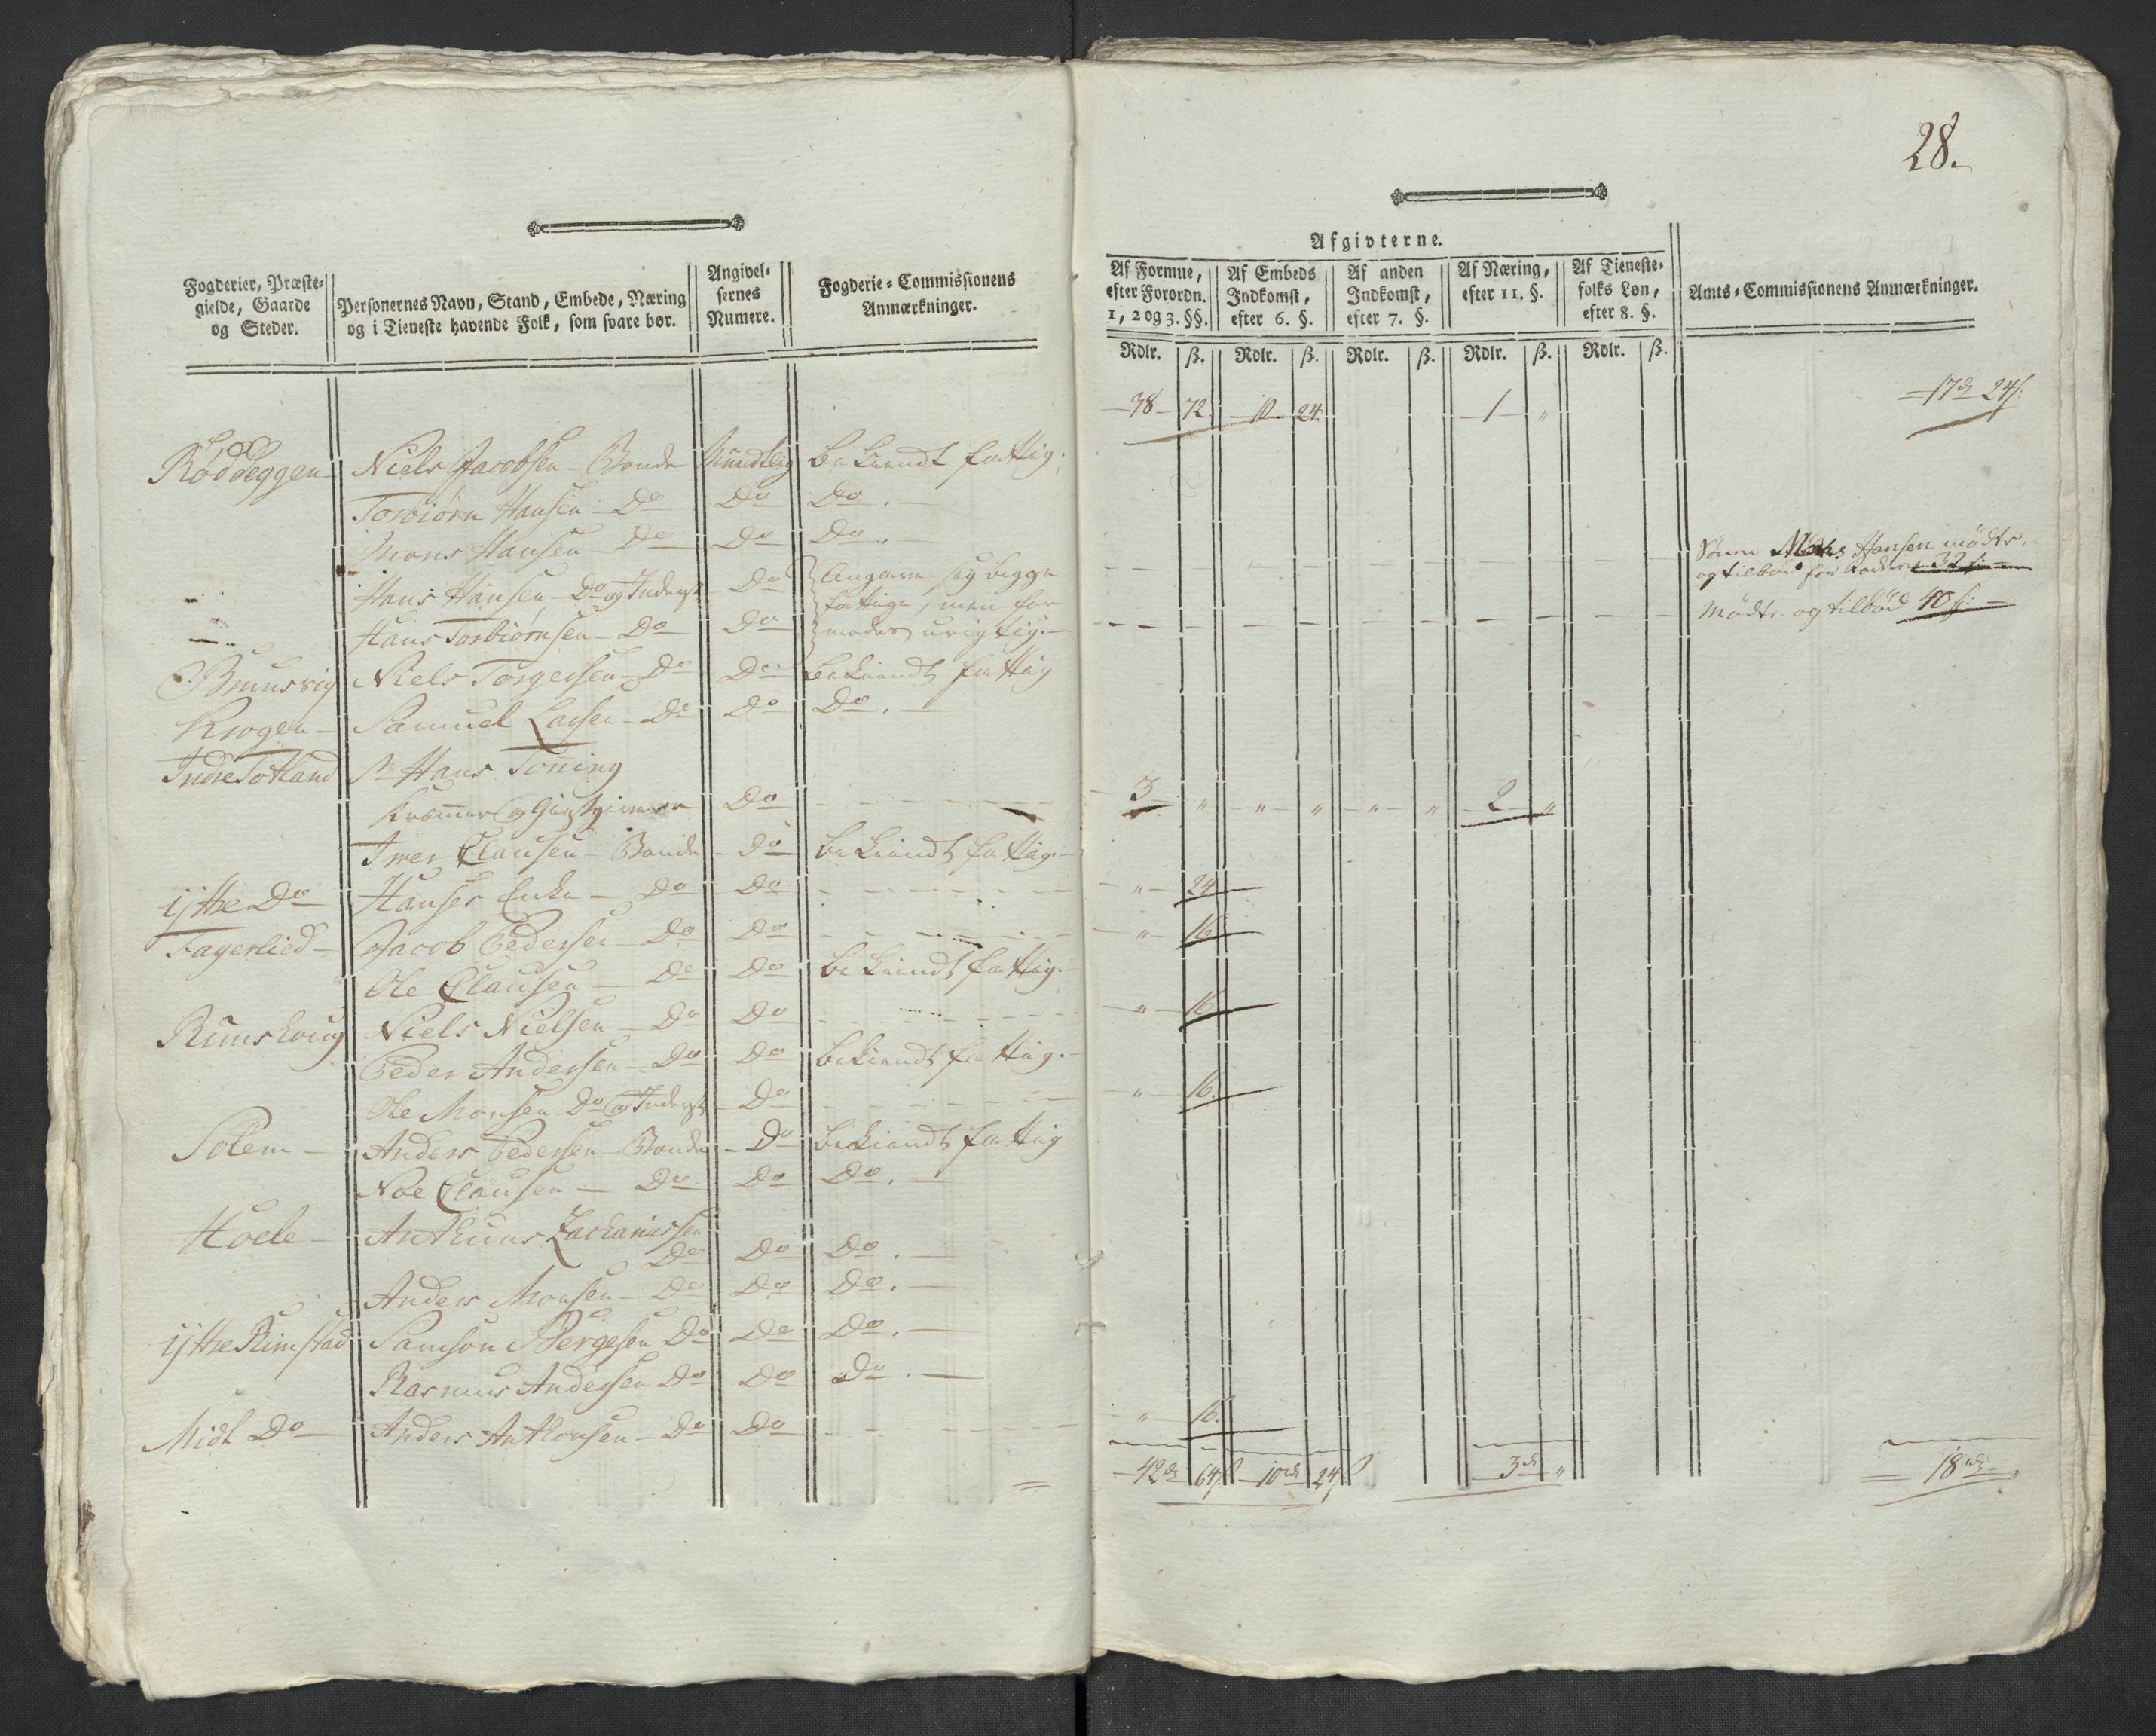 28.
Fogderier, Præste-
gielde, Gaarde
og Steder.
Personernes Navn, Stand, Embede, Næring
og i Tieneste havende Folk, som svare bør.
Angivel-
sernes
Numere.
Fogderie-Commissionens
Anmærkninger.
Afgivterne.
Af Formue,
efter Forordn.
1, 2 og 3. §§.
Af Embeds
Indkomst,
efter 6. §.
Af anden
Indkomst,
efter 7. §.
Af Næring,
efter 11. §.
Af Tieneste-
folks Løn,
efter 8. §.
Amts-Commissionens Anmærkninger.
Rdlr. ß. Rdlr. ß. Rdlr. ß. Rdlr. ß. Rdlr. ß.
38 72. 10 24. 1 " 17 24ß.
Røddeggen Niels Jacobsen Bonde Mundtlig bekiendt fattig.
Torbiørn Hansen Do Do Do.
Mons Hansen Do Do Do.
Hans Hansen Do og Inderst Do Angave sig begge
Sønn Hansen mødte
og tilbød for Faderen 32 ß
fattige, men for-
Hans Torbiørnsen Do Do modes urigtig.
Mødte og tilbød 40 ß.
Brunsvig Niels Torgersen Do Do bekiendt fattig
Krogen Samuel Larsen Do Do Do.
Indre Totland Sr Hans Tøning
Kræmmer og Giestgiver Do 3 " " " " " 2 "
Iver Clausen Bonde Do bekiendt fattig.
ytre Do Hanses Enke Do Do " 24
Fagerlied Jacob Pedersen Do Do " 16
Ole Clausen Do Do bekiendt fattig.
Rimskoug Niels Nielsen Do Do " 16
Peder Andersen Do Do bekiendt fattig.
Ole Monsen Do og Inderst Do " 16.
Solem Anders Pedersen Bonde Do bekiendt fattig
Noe Clausen Do Do Do.
Hoele Anthuns Zachariassen
Do Do Do.
Anders Monsen Do Do Do.
ytre Rimstad Samson Børgesen Do Do Do.
Rasmus Andersen Do Do Do.
Midt Do Anders Anthonsen Do Do " 16.
42 64ß 10 24ß 3 " 18